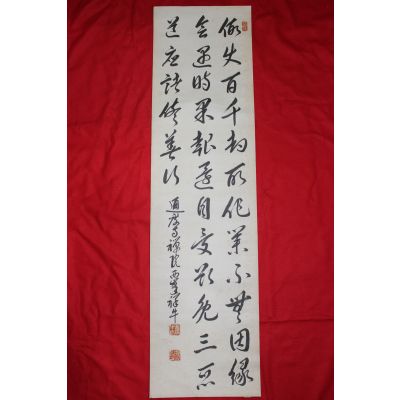 假使百千劫所作業不無因緣
會遇時果報還自受欲免三惡
道應修善行
通度寺禪院西祥牛